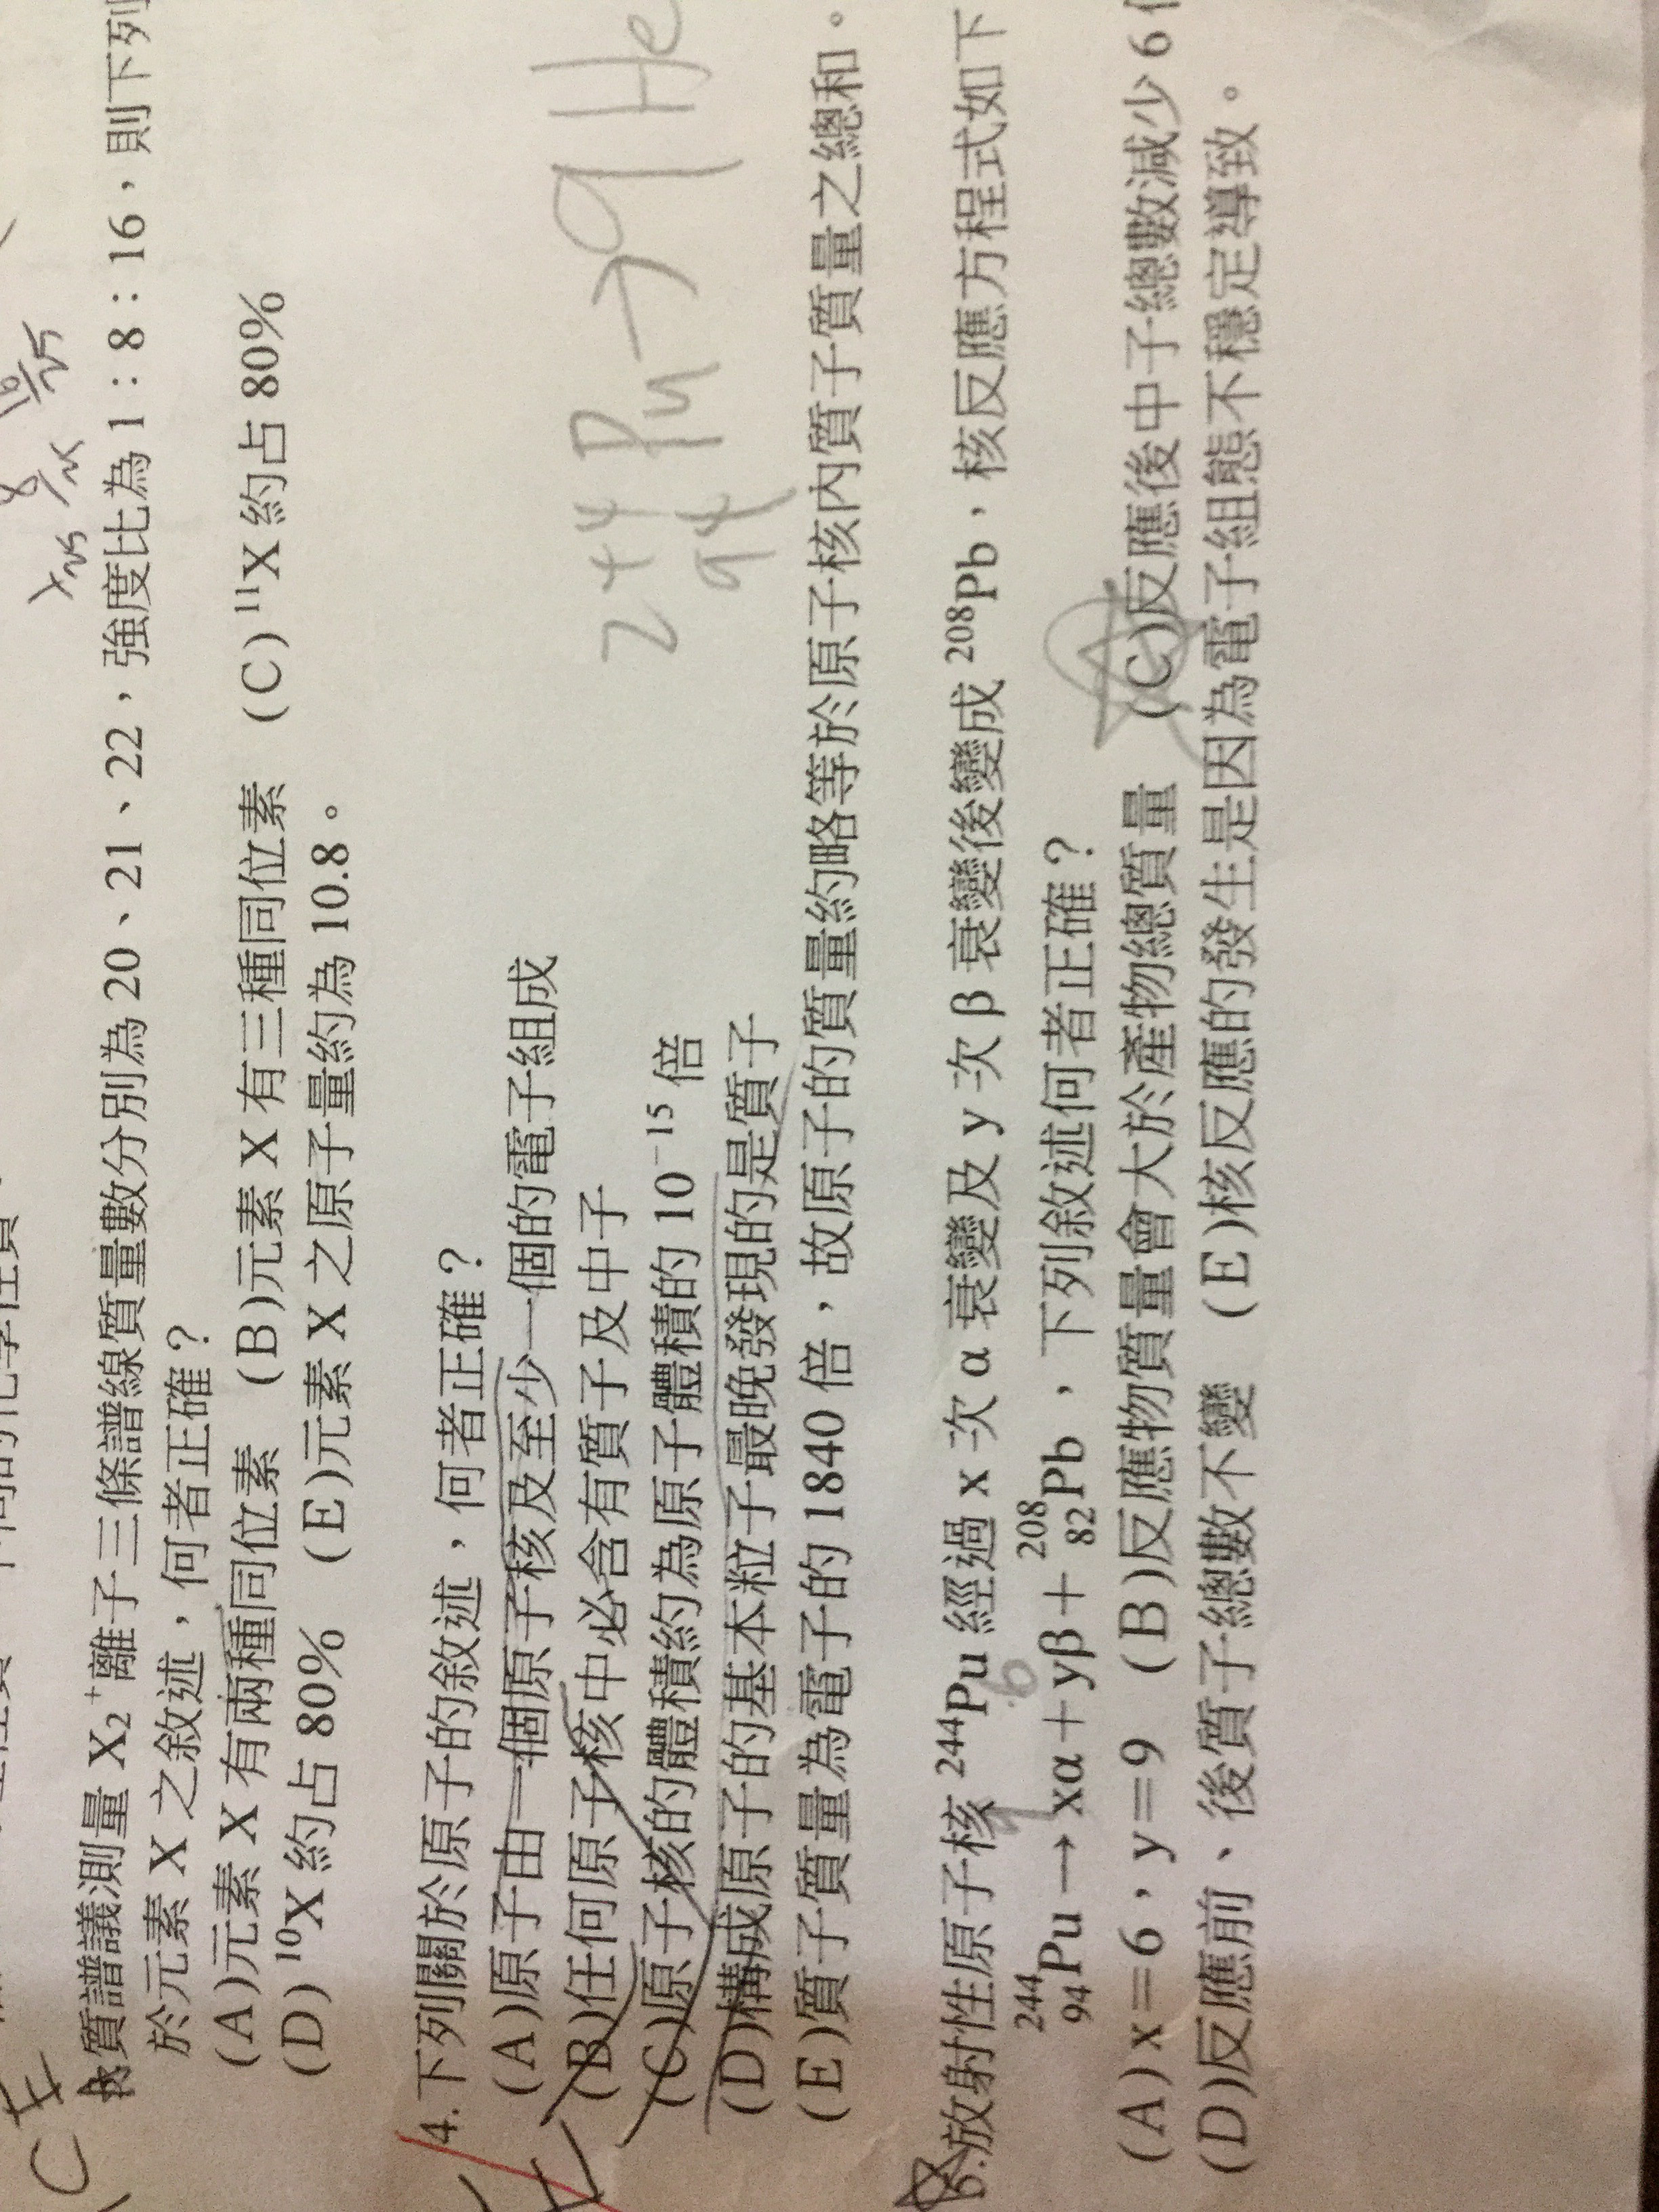 CE
1/25 8/25 16/25
質譜議測量 X₂⁺離子三條譜線質量數分別為 20、21、22，強度比為 1：8：16，則下列
於元素 X 之敘述，何者正確？
(A)元素 X 有兩種同位素 (B)元素 X 有三種同位素 (C) ¹¹X 約占 80%
(D) ¹⁰X 約占 80% (E)元素 X 之原子量約為 10.8。
4. 下列關於原子的敘述，何者正確？
(A)原子由一個原子核及至少一個的電子組成
(B)任何原子核中必含有質子及中子
(C)原子核的體積約為原子體積的 10⁻¹⁵ 倍
(D)構成原子的基本粒子最晚發現的是質子
(E)質子質量為電子的 1840 倍，故原子的質量約略等於原子核內質子質量之總和。
244 94 Pu → 9 He
放射性原子核 ²⁴⁴Pu 經過 x 次 α 衰變及 y 次 β 衰變後變成 ²⁰⁸Pb，核反應方程式如下
²⁴⁴₉₄Pu → xα＋yβ＋²⁰⁸₈₂Pb，下列敘述何者正確？
(A) x＝6，y＝9 (B)反應物質量會大於產物總質量 (C)反應後中子總數減少 6
(D)反應前、後質子總數不變 (E)核反應的發生是因為電子組態不穩定導致。